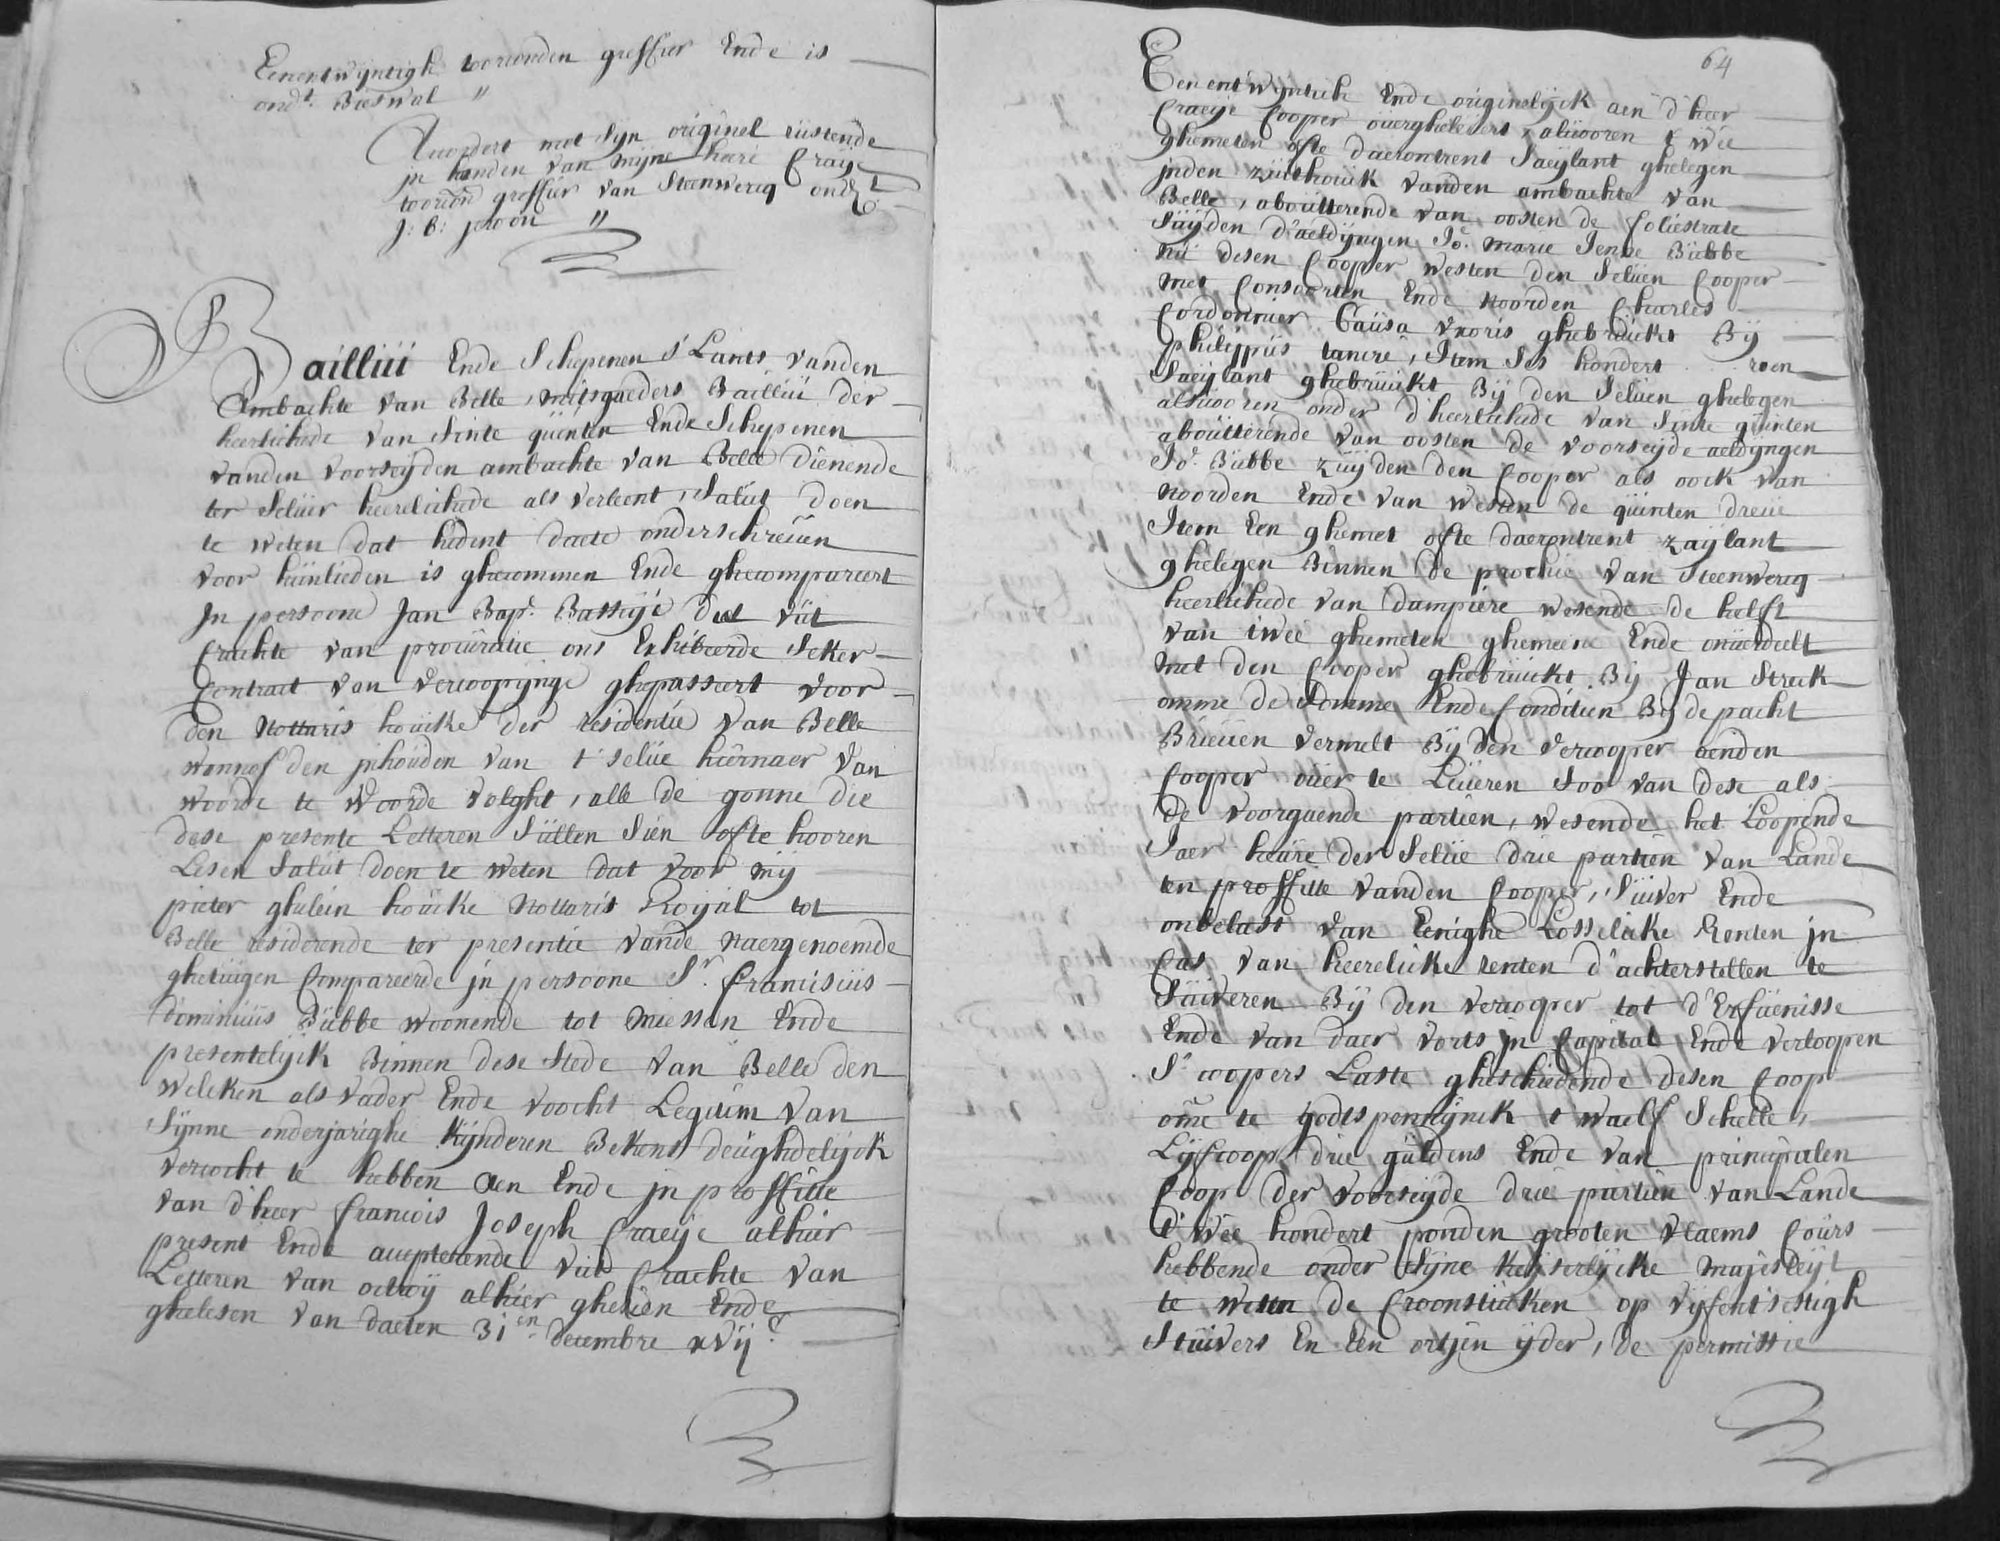 Eenentwyntigh toorconden greffier Ende is
ondt. Bieswal "
Accordert met syn originel rustende
in handen van mijne heere Craije
toorcon greffier van Steenwercq ondt
J: B: proou "
Bailliu Ende Schepenen S'Lants vanden
Ambachte van Belle, mitsgaeders Bailliu der
heerlichede van Sinte quinten Ende Schepenen
vanden voorseijden ambachte van Belle dienende
ter selver heerelichede als verleent, Salut doen
te weten dat hedent daete onderschreven
voor hunlieden is ghecommen Ende ghecompareert
In persoone Jan Bap.e Basseije die uut
Crachte van procuratie ons Exhibeerde Seker
Contract van vercoopijnge ghepasseert voor
den Nottaris houcke der residentie van Belle
wannof den inhouden van t'selve hiernaer van
woorde te woorde volght, alle de gonne die
dese presente Letteren Sullen Sien ofte hooren
Lesen Salut doen te weten dat voor mij
pieter ghelein houcke Nottaris Roijal tot
Belle residerende ter presentie vande naergenoemde
ghetuigen Compareerde in persoone Sr. franciscus
dominicus Bubbe woonende tot miessen Ende
presentelijck Binnen dese Stede van Belle den
welcken als vader Ende voocht Legitim van
Sijnne onderjarighe Kijnderen Bekent deughdelijck
vercocht te hebben aen Ende in proffitte
van d'heer francois Joseph Craeije alhier
present Ende accepterende uut Crachte van
Letteren van octroij alhier ghesien Ende
ghelesen van daeten 31en decembre xvijc
64
Eenentwyntich Ende originelijck aen d'heer
Craeije Cooper overghelevert, alvooren twee
ghemeten ofte daerontrent Saeijlant ghelegen
inden zuuthouck vanden ambachte van
Belle, aboutterende van oosten de Coliestrate
Suijden d'aeldijngen Jo. marie Jenne Bubbe
nu desen Cooper westen den Selven Cooper
met Consoorten Ende noorden Charles
Cordonnier Causa uxoris ghebruickt Bij
philippus tancre, Item Ses hondert roen
Saeijlant ghebruickt Bij den Selven ghelegen
alsvooren onder d'heerlichede van Sinte quinten
aboutterende van oosten de voorseijde aeldijngen
Jo. Bubbe zuijden den Cooper als oock van
noorden Ende van westen de quinten dreve
Item Een ghemet ofte daerontrent zaijlant
ghelegen Binnen de prochie van Steenwercq
heerlichede van dampiere wesende de helft
van twee ghemeten ghemeene Ende onverdeelt
met den Cooper ghebruickt Bij Jan Strek
omme de Somme Ende Conditien Bij de pacht
Brieven vermelt Bij den vercooper aenden
Cooper over te Leveren Soo van dese als
de voorgaende partien, wesende het Loopende
Jaer heure der Selve drie partien van Lande
ten proffitte vanden Cooper, Suiver Ende
onbelast van Eenighe Losselicke Renten in
Cas van heerelicke renten d'achterstellen te
Suiveren Bij den vercooper tot d'Erfvenisse
Ende van daer vorts in Capital Ende verloopen
S'coopers Laste gheschiedende desen Coop
ome te godtspennijnck twaelf Schelle,
Lijfcoop drie guldens Ende van principalen
Coop der voorseijde drie partien van Lande
twee hondert ponden grooten vlaems Cours
hebbende onder Sijne Keijserlijcke majesteijt
te weten de Croonsticken op vijfentsestigh
Stuivers En Een ortjen ijder, de permissie